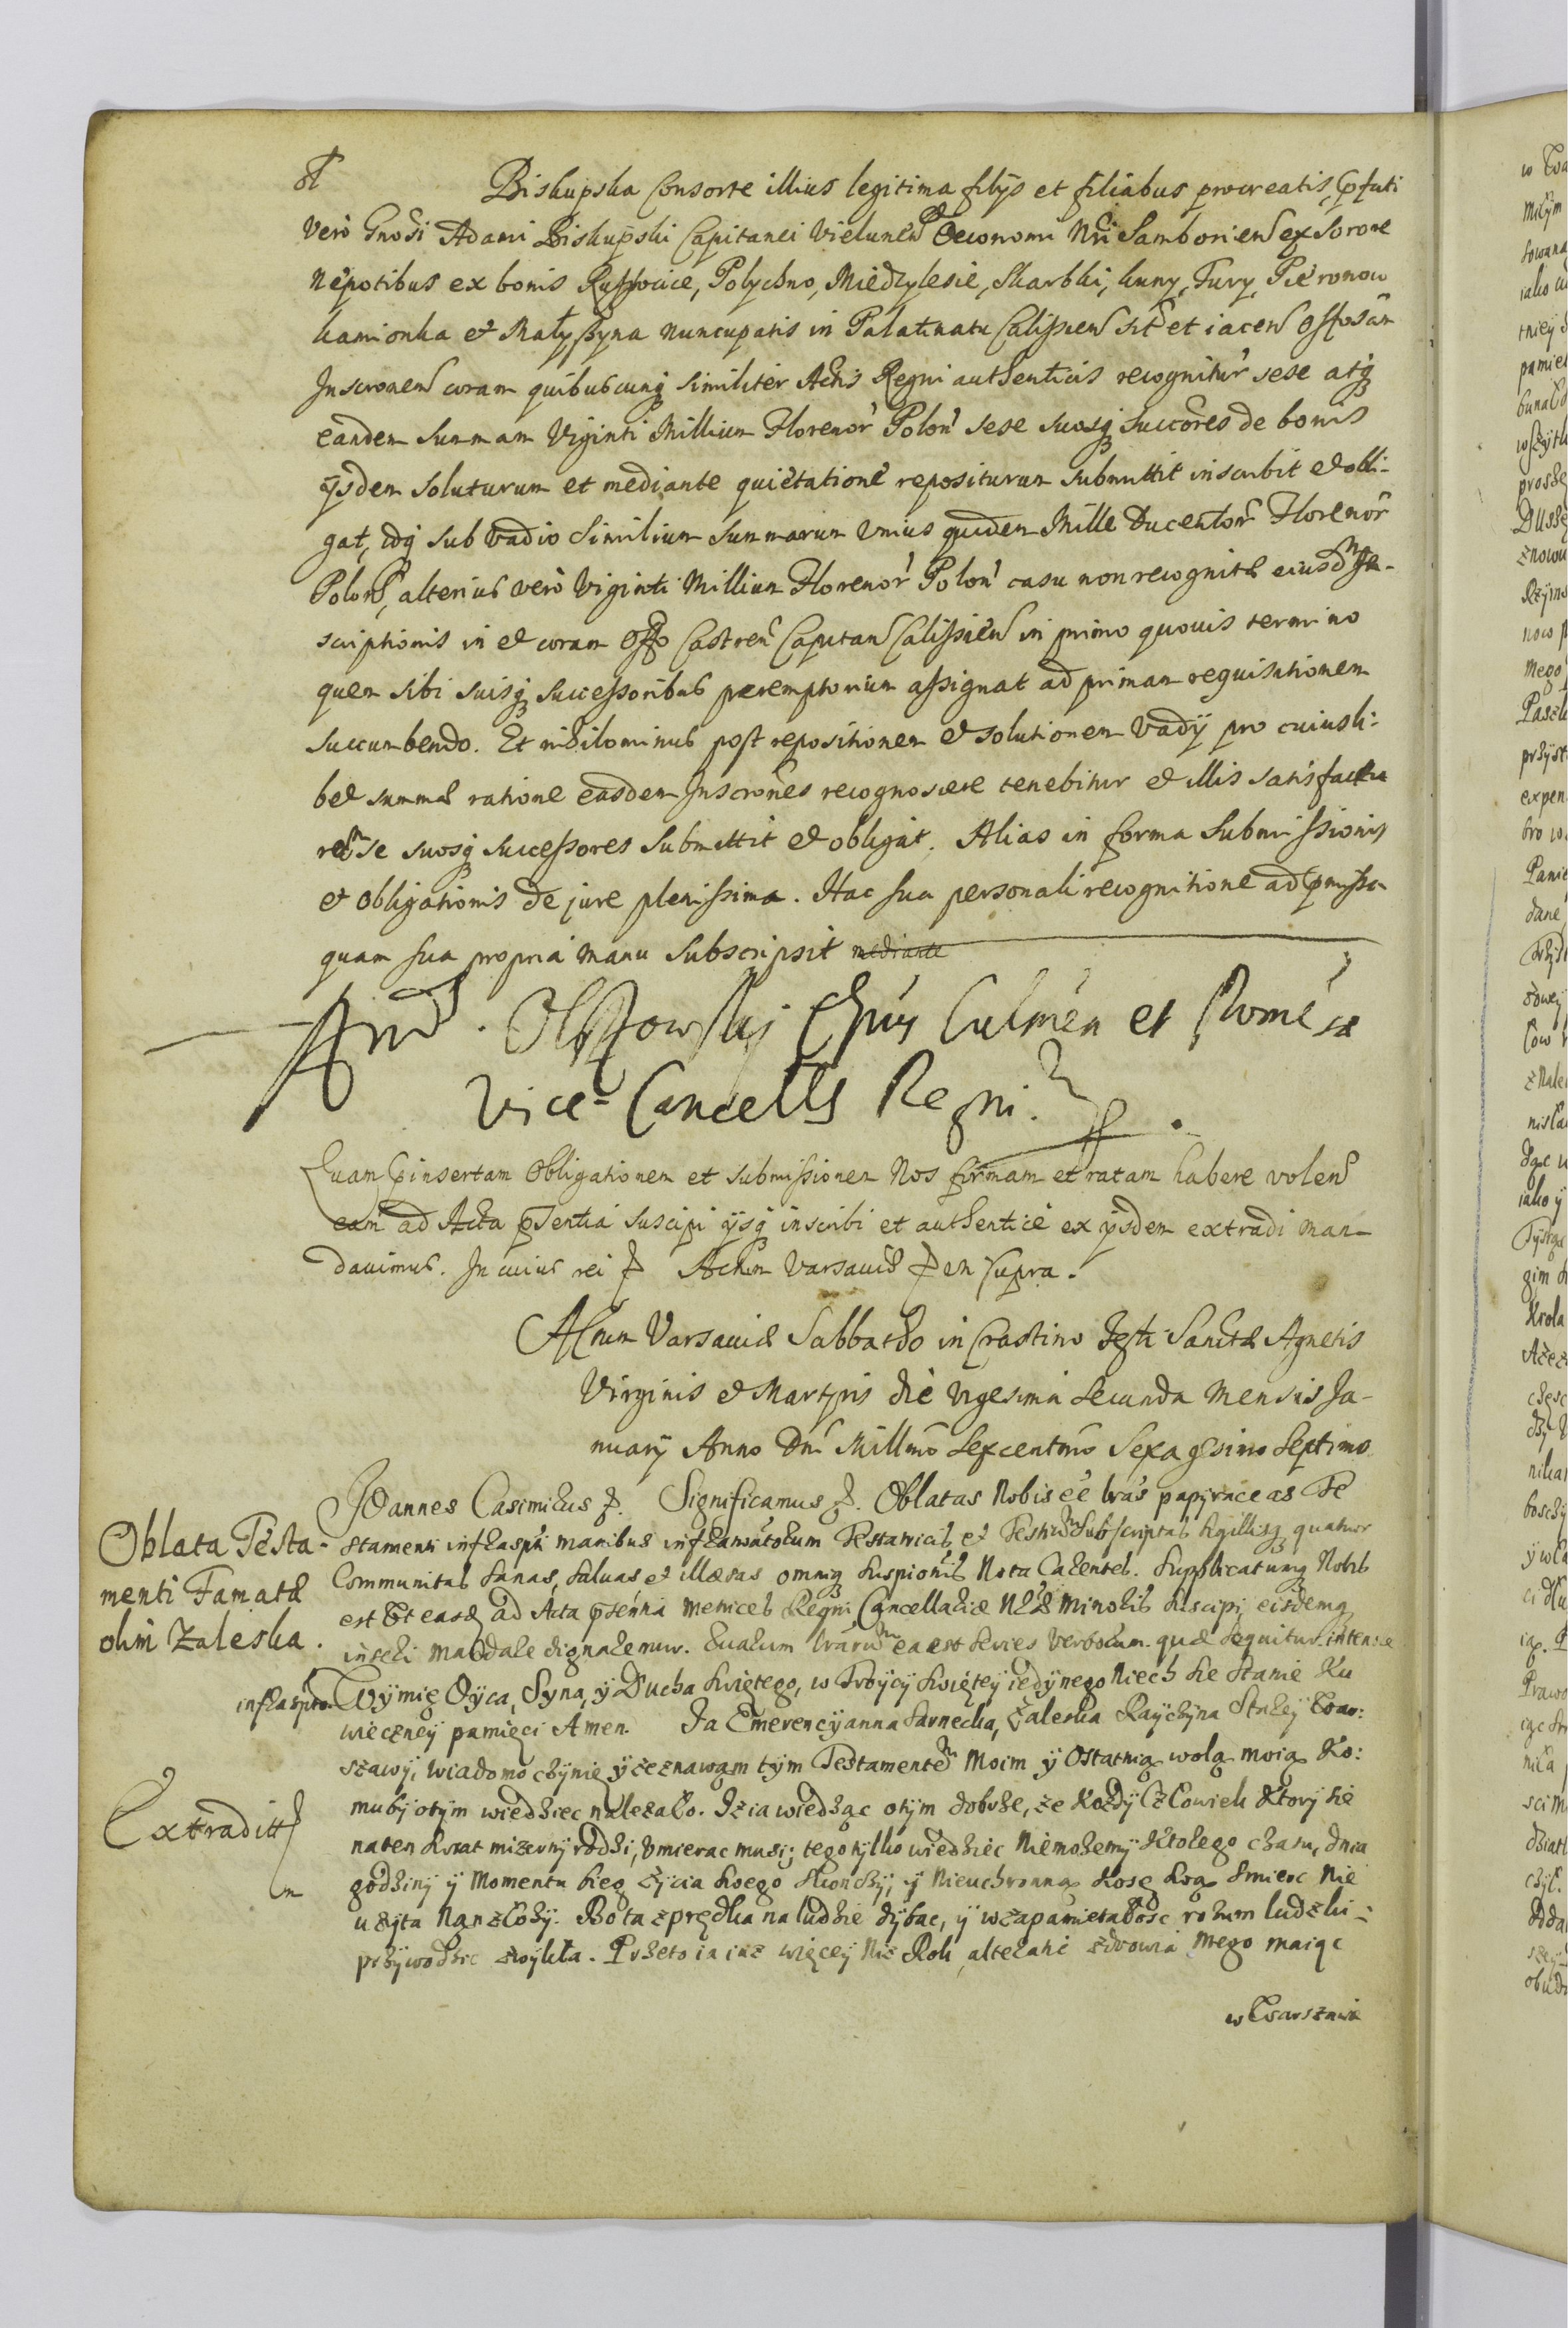 Biskupska Consorte illius legitima filijs et filiabus procreatis, pfati
Vero Gnosi Adami Biskupski Capitanei Vielunen Oeconomi Nri Samborien ex Sorore
Nepotibus ex bonis Russocice, Polychno, Miedzylesie, Skarbki, Kuny, Tury, Pieronow
kamionka et Małyszyna nuncupatis in Palatinatu Calissien sit et iacen
Inscronem coram quibuscunq similiter Actis Regni authenticis recognitur sese atq
eandem summam Viginti Millium Florenor Polon sese suosq succores de bonis
ijsdem soluturum et mediante quietatione repositurum submittit inscribit et obli-
gat, idq sub vadio similium summarum unius quidem Mille Ducentor Florenor
Polon, alterius vero Viginti Millium Florenor Polon casu non recognitae eiusdm In-
scriptionis in et coram Offo Castren Capitan Calissien in primo quovis termino
quem sibi suisq successoribus peremptorium assignat ad primam requisitionem
succumbendo. Et nihilominus post repositionem et solutionem vadij pro cuiusli-
bet summae ratione easdem Inscrones recognoscere tenebitur et illis satisfactu
rum se suosq successores submittit et obligat. Alias in forma submissionis
et obligationis de jure plenissima. Hac sua personali recognitione ad pmissa
quam sua propria manu subscripsit mediante
And. Olszowskij Eppus Culmen et Pomesa
Vice-Cancells Regni.
Quam pinsertam Obligationem et submissionem Nos firmam et ratam habere volen
eam ad Acta psentia suscipi ijsq inscribi et authentice ex ijsdem extradi man-
davimus. In cuius rei Actum Varsaviae en supra.
Actum Varsaviae Sabbatho in Crastino Festi Sanctae Agnetis
Virginis et Martyris die Vigesima Secunda Mensis Ja-
nuarij Anno Dni Millmo Sexcentmo Sexagesimo Septimo
Oblata Testa-
menti Famatae
olim Zaleska.
Joannes Casimirus Significamus Oblatas Nobis ee lras papyraceas Te
stamenti infraspti manibus infranotorum Testatricis et Testium subscriptas sigillisq quatuor
Communitas sanas, salvas et illaesas omniq suspionis Nota Carentes. Supplicatumq Nobis
est Ut easd ad Acta psentia Metrices Regni Cancellariae Nrae Minoris suscipi eisdemq
inseri mandare dignaremur. Quarum lrarum ea est series verborum quae sequitur intense
infraspto. W ymię Oyca, Syna, y Ducha Świętego, w Troycy Świętey iedynego Niech se stanie Ku
wieczney pamięci Amen. Ja Emerencyanna Sarnecka, Zaleska Rayczyna Starey War:
szawy, wiadomo czynię y zeznawam tym Testamentem Moim y Ostatnią wolą moią Ko:
muby o tym wiedziec nalezało. Iz ia wiedząc o tym dobrze, ze Kozdy Człowiek Ktory sie
Extraditt
na ten swiat mizerny rodzi, Umierac musi; tego tylko wiedziec niemozemy Ktorego czasu, dnia
godziny y Momentu bieg zycia swego skonczy, y Nieuchronną Kosę swą smierc Nie
uzyta Nan złozy. Bo ta zprędka na ludzie dybac, y w zapamietałosc rozum ludzki-
przywodzic zwykła. Przeto ia iuz więcey Niz Rok, alteracie zdrowia Mego maiąc
w Warszawie